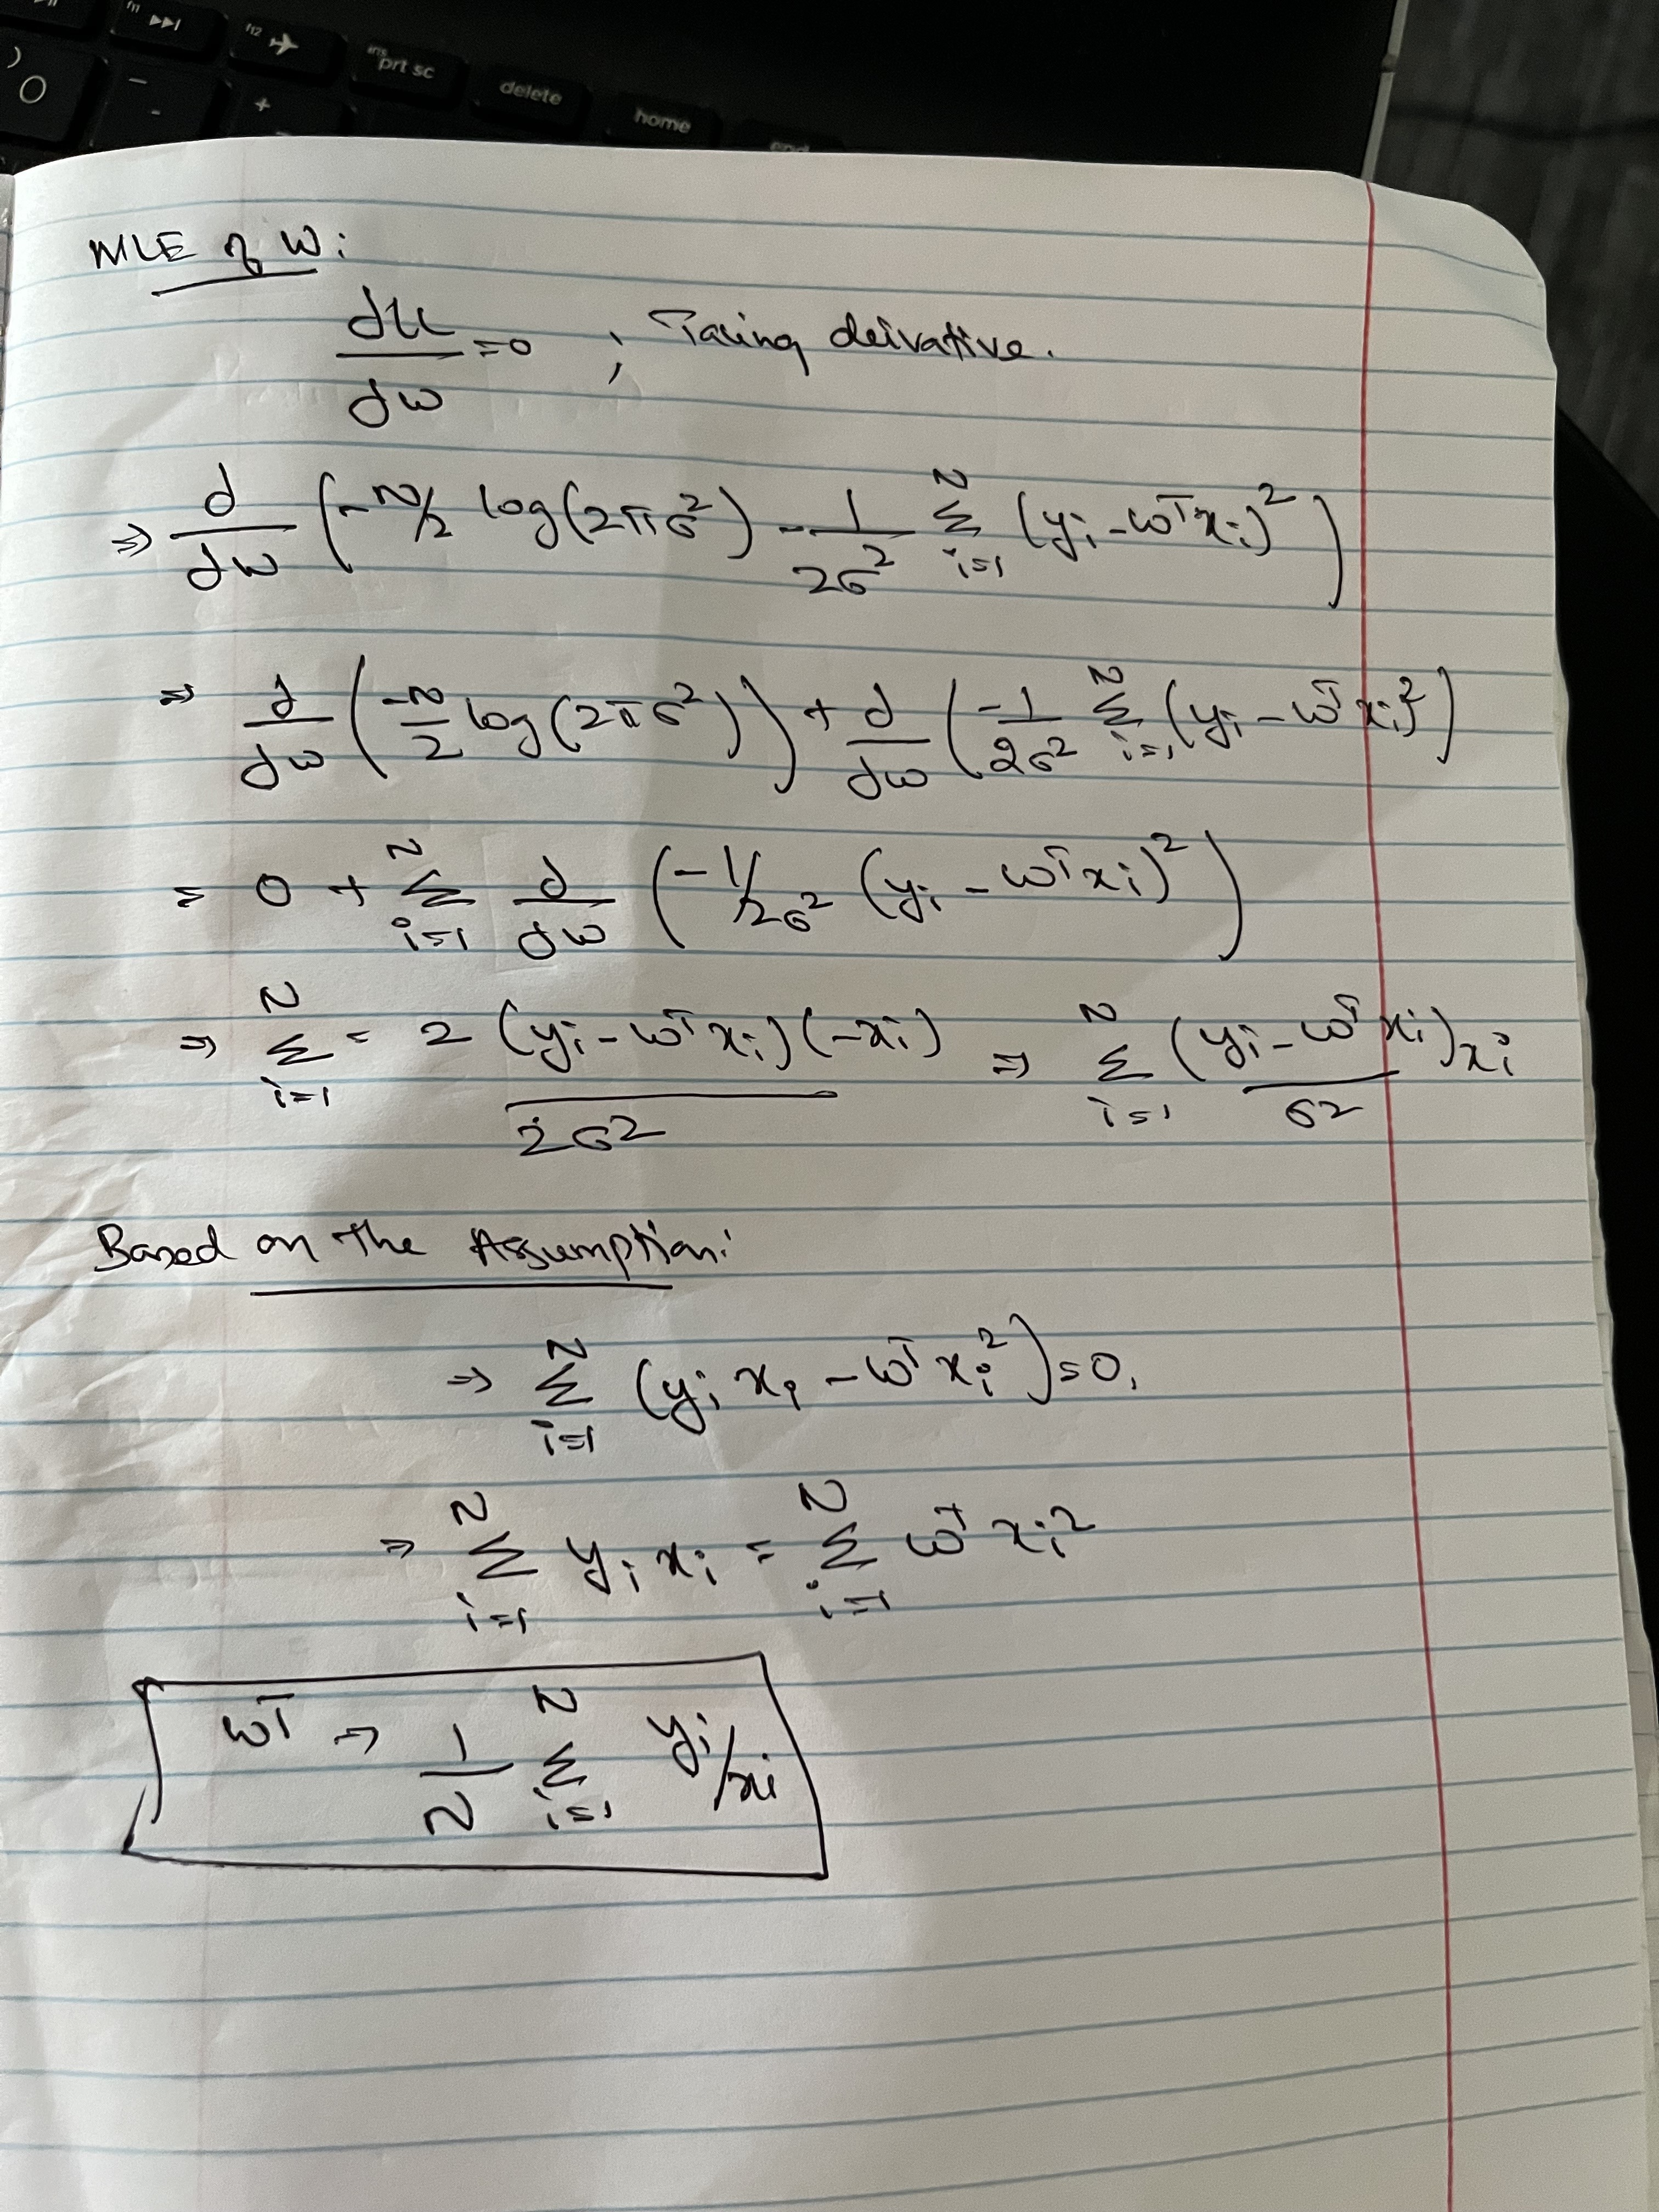 f11
f12
ins
prt sc
delete
home
end
)
0
-
+
MLE of W:
dLL/dw =0 ; Taking deivative.
⇒ d/dw (-N/2 log(2πσ²) - 1/2σ² Σ_{i=1}^{N} (yi - wᵀxi)²)
⇒ d/dw (-N/2 log(2πσ²)) + d/dw (-1/2σ² Σ_{i=1}^{N} (yi - wᵀxi)²)
= 0 + Σ_{i=1}^{N} d/dw (-1/2σ² (yi - wᵀxi)²)
⇒ Σ_{i=1}^{N} - 2 (yi - wᵀxi)(-xi) / 2σ² ⇒ Σ_{i=1}^{N} (yi - wᵀxi)xi / σ²
Based on the Assumption:
⇒ Σ_{i=1}^{N} (yi xi - wᵀxi²) = 0.
⇒ Σ_{i=1}^{N} yi xi = Σ_{i=1}^{N} wᵀ xi²
wᵀ ⇒ 1/N Σ_{i=1}^{N} yi/xi